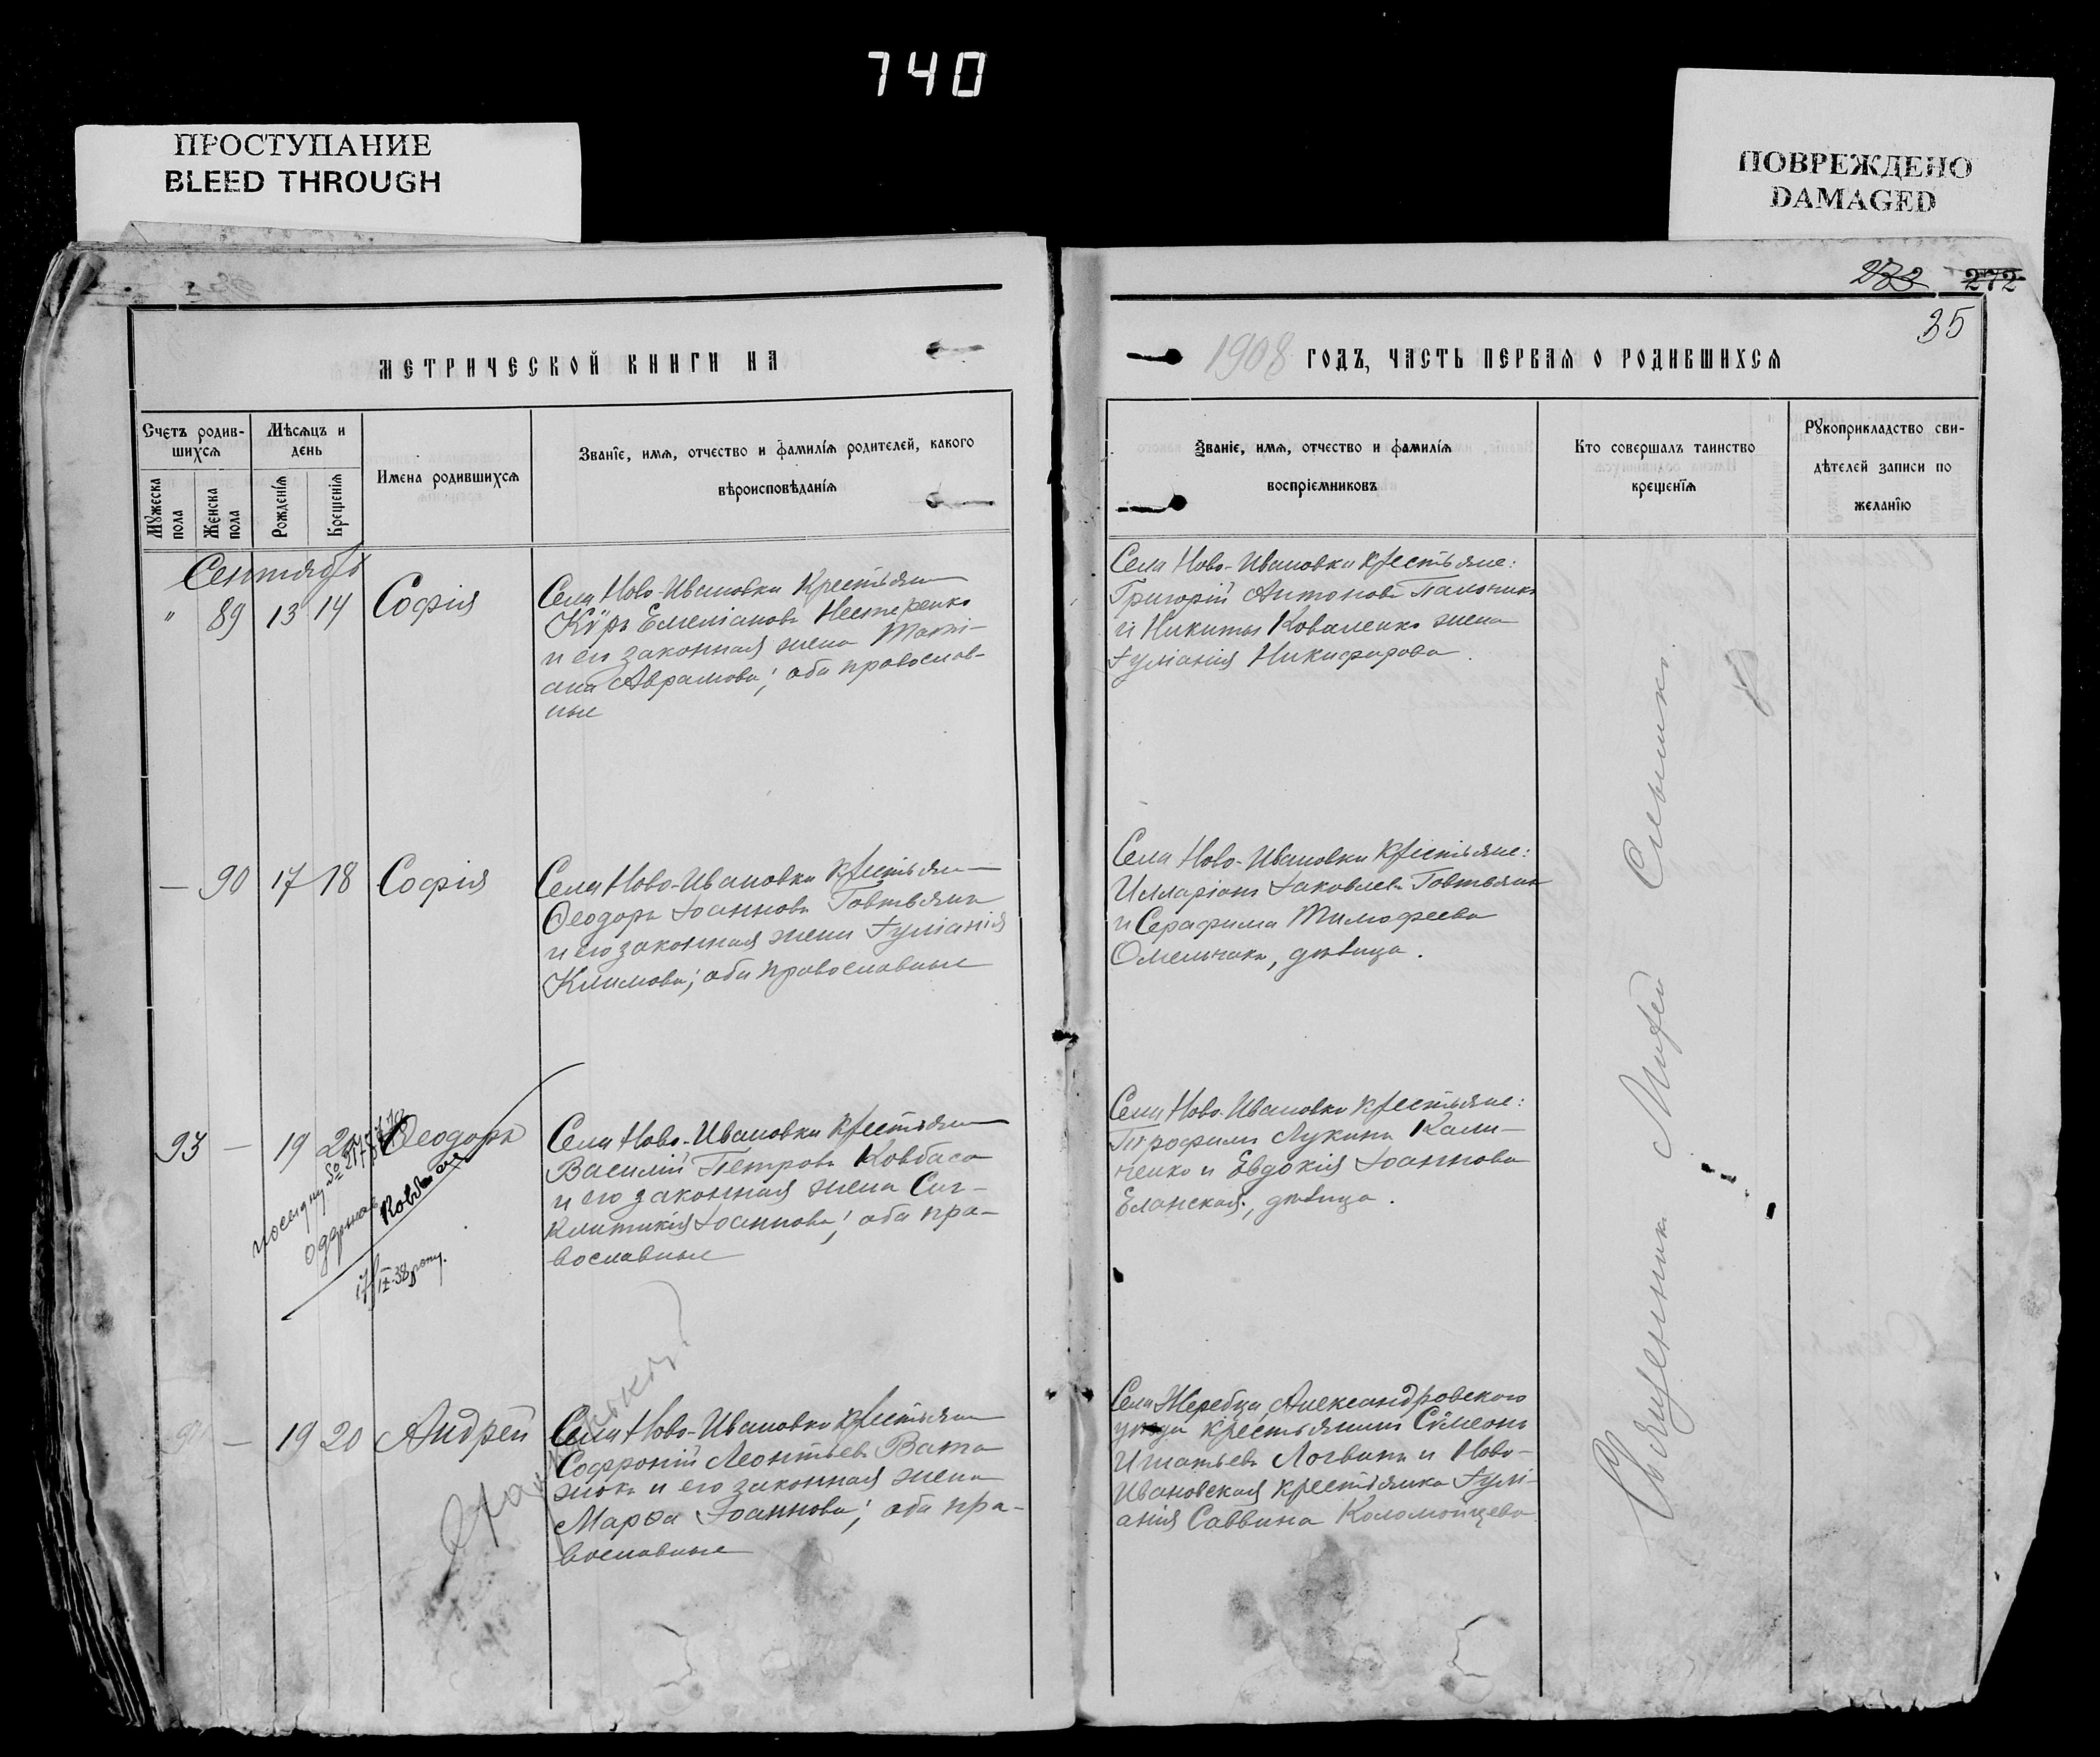 740
ПРОСТУПАНИЕ
BLEED THROUGH
ПОВРЕЖДЕНО
DAMAGED
272
35
МЕТРИЧЕСКОЙ КНИГИ НА
1908 ГОДЪ, ЧАСТЬ ПЕРВАЯ О РОДИВШИХСЯ
Счетъ родив-
шихся
Мѣсяцъ и
день
Мужеска
пола
Женска
пола
Рожденія
Крещенія
Имена родившихся
Званіе, имя, отчество и фамилія родителей, какого
вѣроисповѣданія
Званіе, имя, отчество и фамилія
воспріемниковъ
Кто совершалъ таинство
крещенія
Рукоприкладство сви-
дѣтелей записи по
желанію
Сентябрь
" 89 13 14 Софія
Села Ново-Ивановки Крестьянин
Кѵръ Емеліановъ Нестеренко
и его законная жена Тати-
ана Аврамова; оба православ-
ные
Села Ново-Ивановки крестьяне:
Григорій Антоновъ Пальчикъ
и Никиты Коваленко жена
Іуліанія Никифорова
— 90 17 18 Софія
Села Ново-Ивановки крестьянин
Ѳеодоръ Іоанновъ Говтвянъ
и его законная жена Іуліанія
Климова; оба православные
Села Ново-Ивановки крестьяне:
Илларіонъ Іаковлевъ Говтвянъ
и Серафима Тимофеева
Омельчакъ, дѣвица.
93 — 19 Ѳеодоръ
Села Ново-Ивановки крестьянин
Василій Петровъ Ковбаса
и его законная жена Син-
клитикія Іоаннова; оба пра-
вославные
Села Ново-Ивановки крестьяне:
Трофимъ Лукинъ Кали-
ченко и Евдокія Іоаннова
Еланская, дѣвица.
№ 2178
одержав Ковбаса
17/IX-38 року.
— 19 20 Андрей
Села Ново-Ивановки крестьянин
Софроній Леонтьевъ Вата
жокъ и его законная жена
Марѳа Іоаннова; оба пра-
вославные
Села Жеребца, Александровского
уезда крестьянинъ Сѵмеонъ
Игнатьевъ Логвинъ и Ново-
Ивановская крестьянка Іулі-
анія Саввина Коломойцева
Священникъ